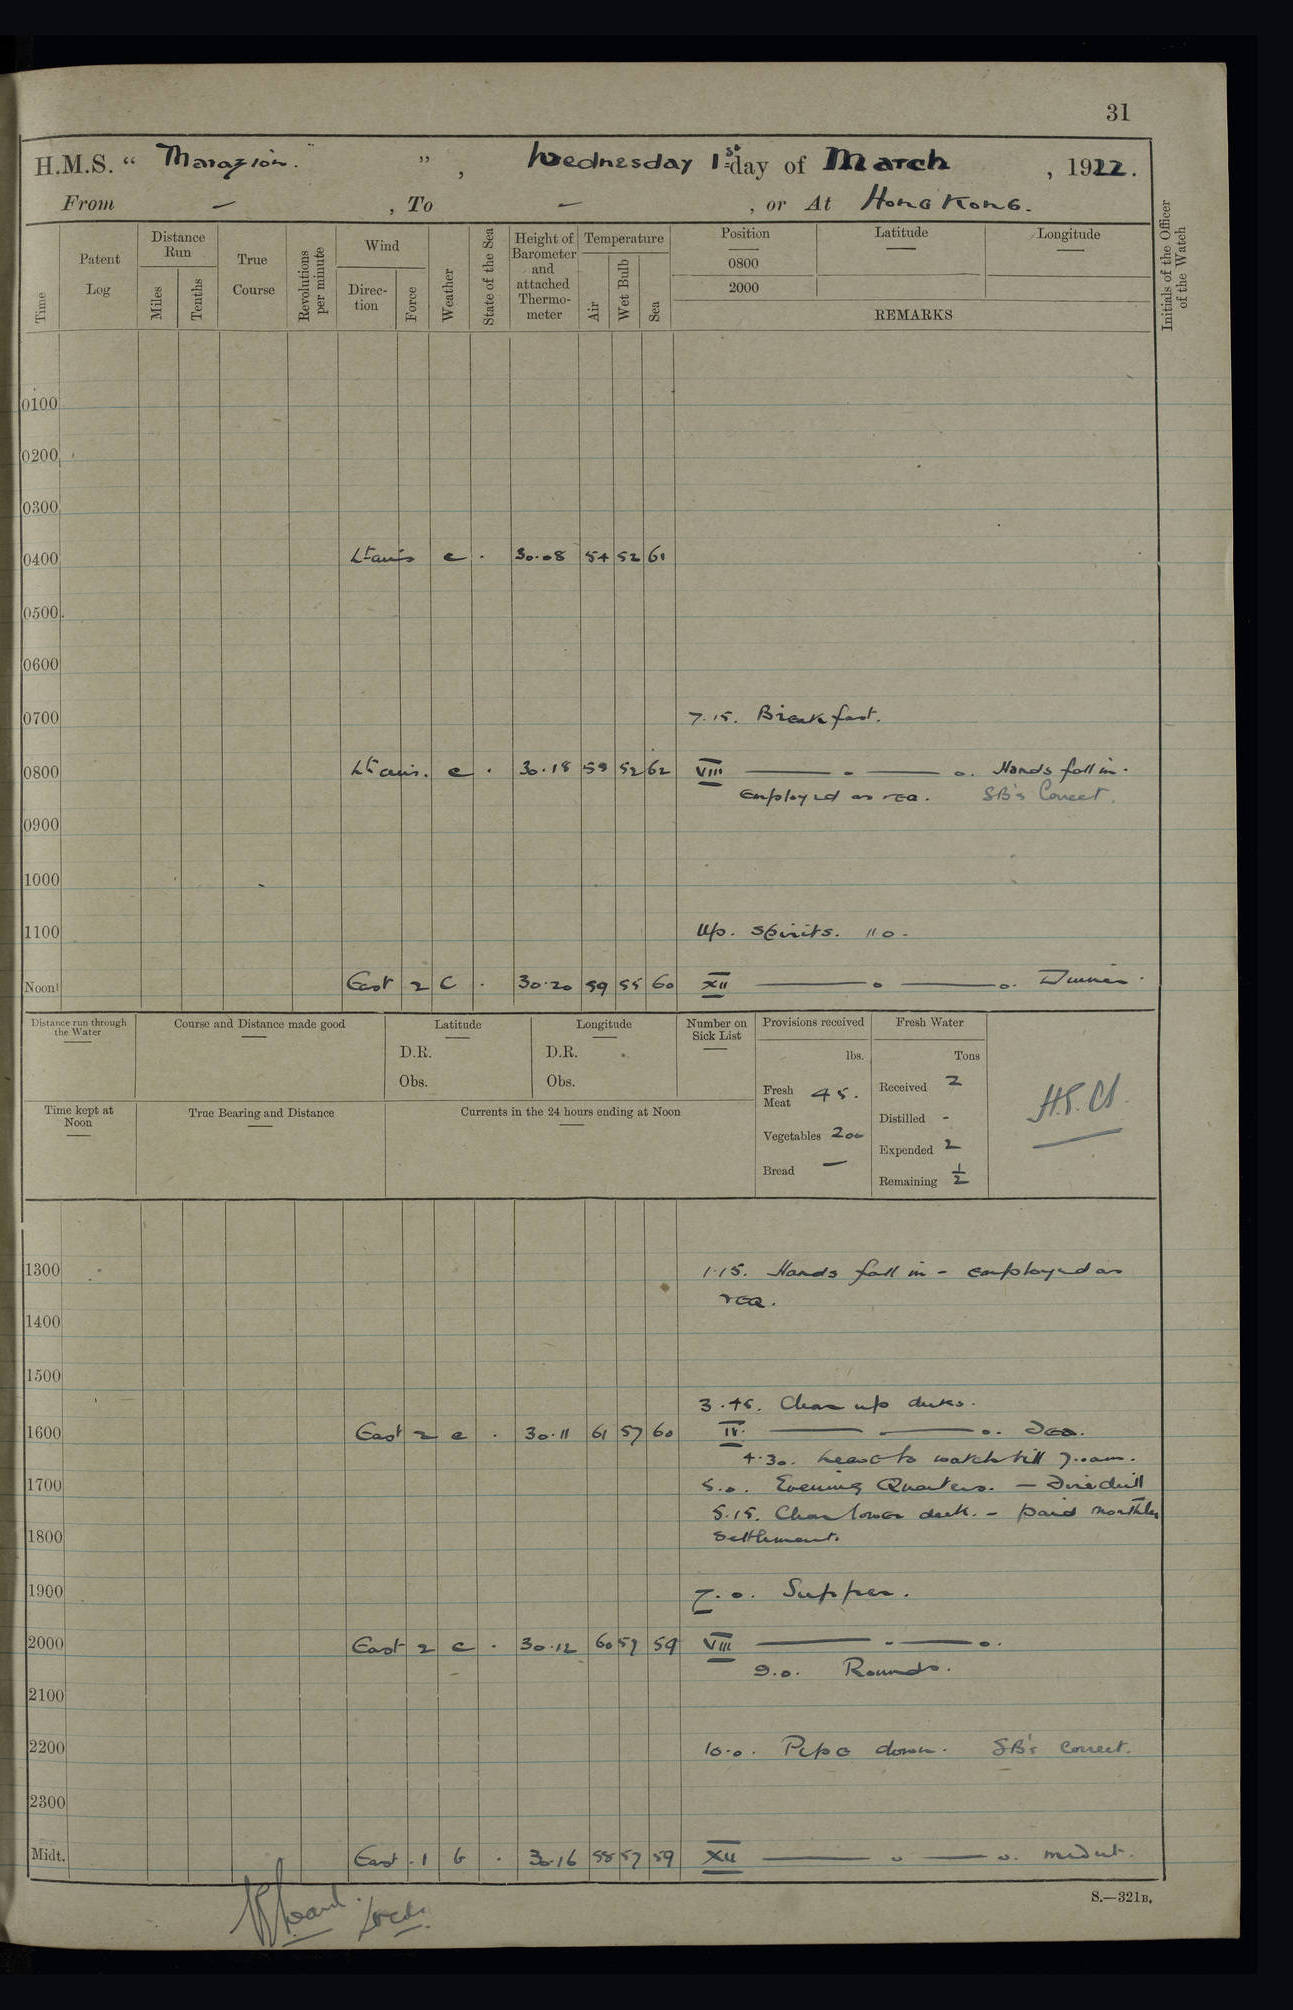 31
H.M.S. “ Marazion. ” , Wednesday 1st day of March , 1922.
From — , To — , or At Hong Kong.
Time
Patent Log
Distance Run
Miles
Tenths
True Course
Revolutions per minute
Wind
Direc-tion
Force
Weather
State of the Sea
Height of Barometer and attached Thermo-meter
Temperature
Air
Wet Bulb
Sea
Position
0800
2000
Latitude
Longitude
REMARKS
Initials of the Officer of the Watch
0100
0200
0300
0400 Lt airs c . 30.08 54 52 61
0500
0600
0700 7.15. Breakfast.
0800 Lt airs. c . 30.18 58 52 62 VIII — . — o. Hands fall in.
employed as req. SB's Correct.
0900
1000
1100 Up. Spirits. 11 0.
Noon East 2 C . 30.20 59 55 60 XII — o — o. Dinner.
Distance run through the Water
Course and Distance made good
Latitude
D.R.
Obs.
Longitude
D.R.
Obs.
Number on Sick List
Provisions received
lbs.
Fresh Meat 45.
Vegetables 200
Bread —
Fresh Water
Tons
Received 2
Distilled -
Expended 2
Remaining 1/2
Time kept at Noon
True Bearing and Distance
Currents in the 24 hours ending at Noon
1300 1.15. Hands fall in - employed as
req.
1400
1500
3.45. Clear up decks.
1600 East 2 c . 30.11 61 57 60 IV. — — o. Tea.
4.30. Leave to watch till 7.0am.
1700 5.0. Evening Quarters. — Fire drill
5.15. Clear lower deck. - paid monthly
1800 settlement.
1900 7.0. Supper.
2000 East 2 c . 30.12 60 57 59 VIII — . — o.
9.0. Rounds.
2100
2200 10.0. Pipe down. SB's Correct.
2300
Midt. East . 1 b . 30.16 58 57 59 XII — o — o. midnt.
S.—321B.